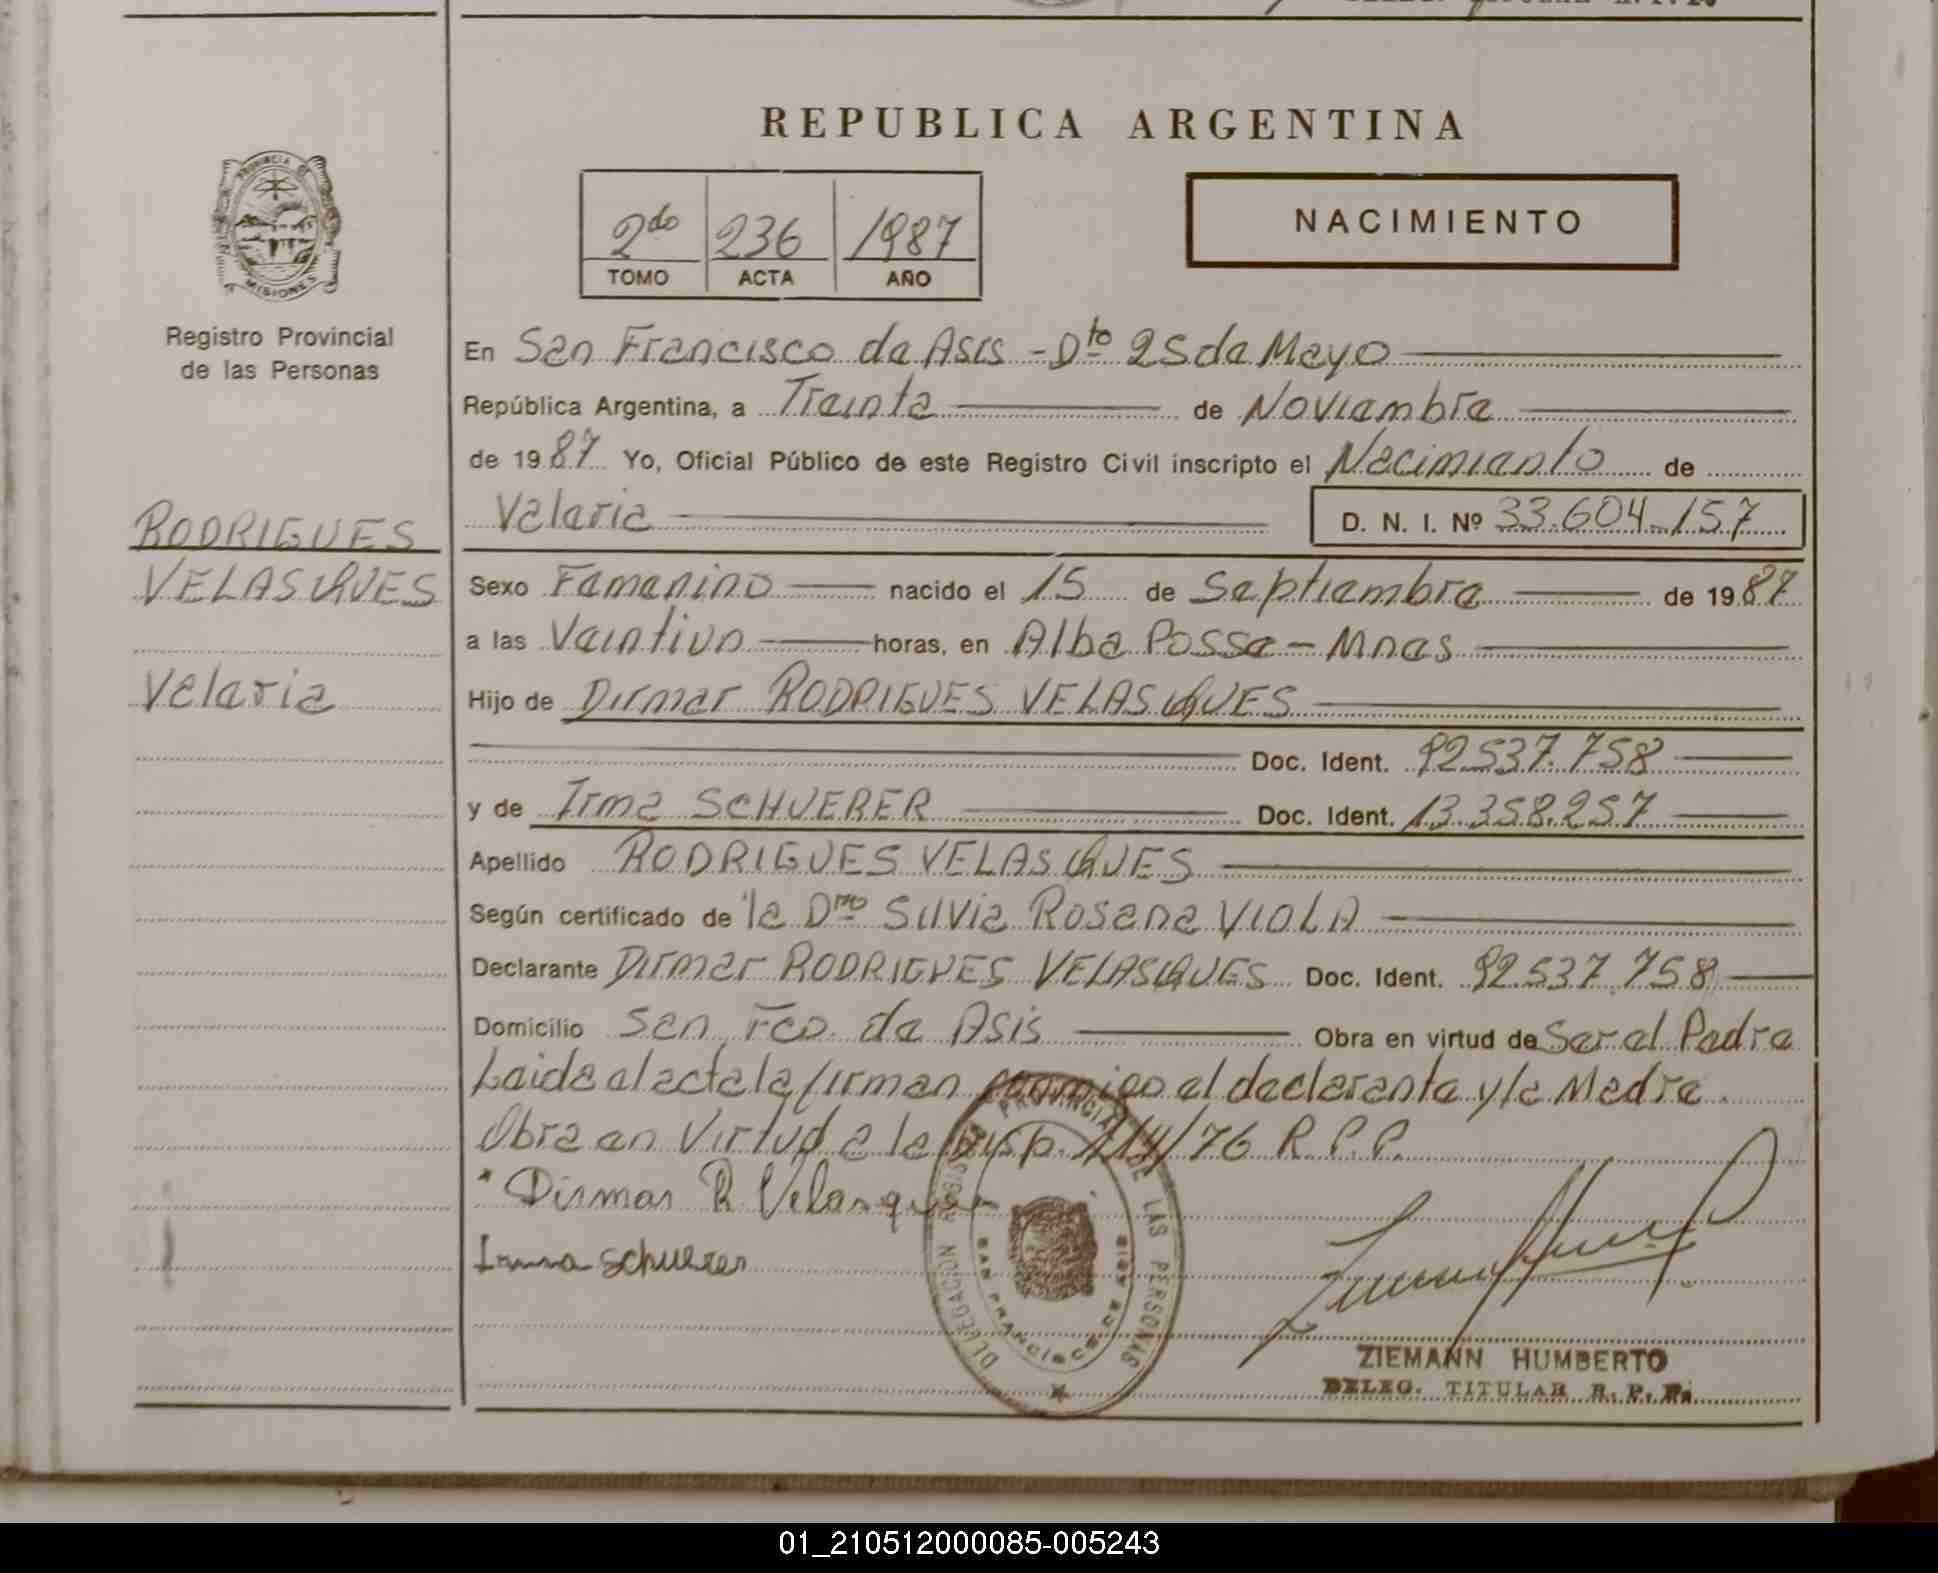 REPUBLICA ARGENTINA
PROVINCIA DE MISIONES
Registro Provincial
de las Personas
2do 236 1987
TOMO ACTA AÑO
NACIMIENTO
En San Francisco de Asis - Dto 25 de Mayo
República Argentina, a Treinta de Noviembre
de 1987 Yo, Oficial Público de este Registro Civil inscripto el Nacimiento de
Valeria D. N. I. Nº 33.604.157
RODRIGUES
VELASQUES
Valeria
Sexo Femenino nacido el 15 de Septiembre de 1987
a las Veintiun horas, en Alba Posse - Mnes
Hijo de Dirmar RODRIGUES VELASQUES
Doc. Ident. 92.537.758
y de Irma SCHUERER Doc. Ident. 13.358.257
Apellido RODRIGUES VELASQUES
Según certificado de la Dra Silvia Rosana VIOLA
Declarante Dirmar RODRIGUES VELASQUES Doc. Ident. 92.537.758
Domicilio San Fco. de Asis Obra en virtud de Ser el Padre
Leida el acta la firman conmigo el declarante y la Madre.
Obra en Virtud a la Disp. /76 R.P.P.
Dirmar R. Velasques
Irma Schuerer
DELEGACION REGISTRO PROVINCIAL DE LAS PERSONAS
SAN FRANCISCO DE ASIS
ZIEMANN HUMBERTO
DELEG. TITULAR R. P. P.
01_210512000085-005243